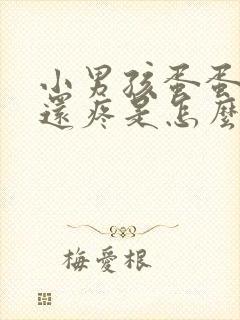 小男孩蛋蛋
還疼是怎麼
梅愛根